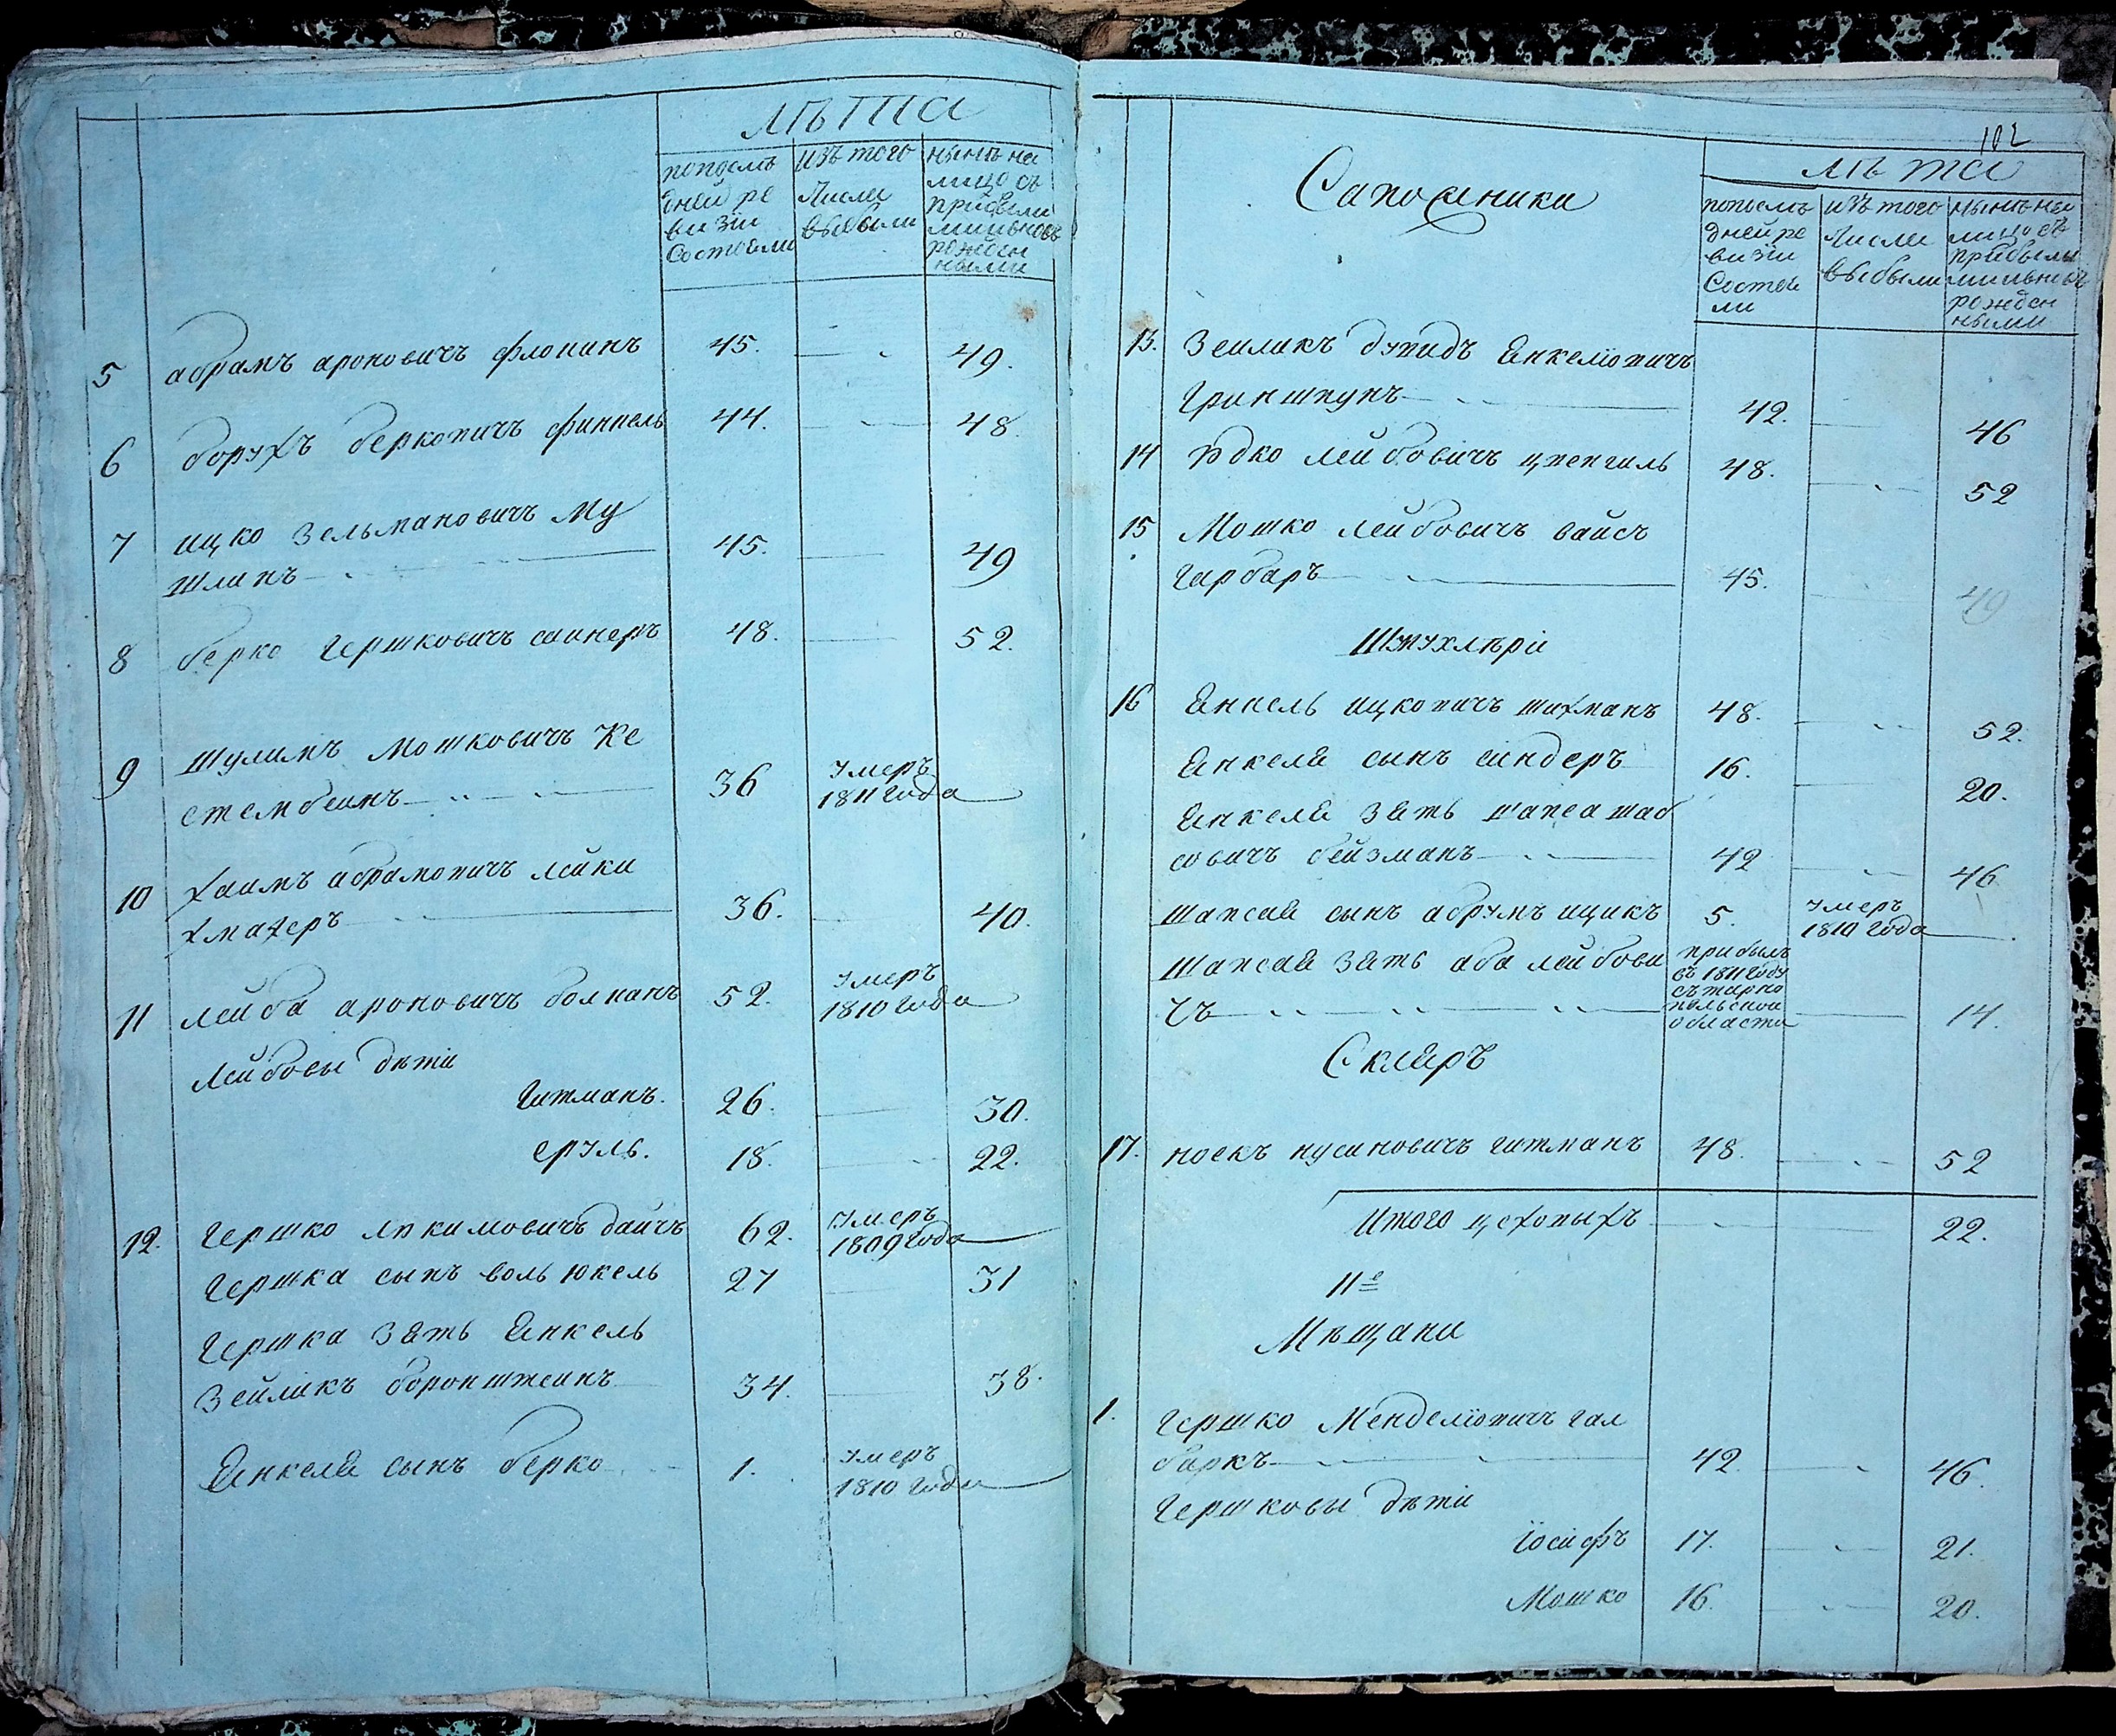 лѣта
попоемъ
дней ре
визіи
состоали
изъ того
числа
выбыли
нынѣ на
лицо съ
прибыли
ми и вновь
рожден
ными
5 абрамъ ароновичъ флопинъ 45. 49.
6 борухъ берковичъ финкель 44. 48.
7 ицко зельмановичъ Му
шлинъ 45. 49
8 берко гершковичъ 48. 52.
9 шулимъ мошковичъ Ке
стембеинъ 36 умеръ
1811 года
10 хаимъ абрамовичъ лейки
хмахеръ 36. 40.
11 лейба ароновичъ болканъ 52. умеръ
1810 года
лейбовы дѣти
гитманъ. 26. 30.
сруль. 18. 22.
12. гершко якимовичъ дайчъ 62. умеръ
1809 года
гершка сынъ воль юкель 27 31
гершка зять янкель
зейликъ боронштеинъ 34. 38.
янкеля сынъ берко 1. умеръ
1810 года
102
Сапожники
лѣта
попоемъ
дней ре
визіи
состоа
ли
изъ того
числа
выбыли
нынѣ на
лицо съ
прибылы
ми и вновь
рожден
ными
13. Зеиликъ дувидъ янкеліовичъ
гриншпунъ 42. 46
14 юдко лейбовичъ цвенгиль 48. 52
15 Мошко лейбовичъ вайсъ
гарбаръ 45. 49
Шмухлѣри
16 янкель ицковичъ шихманъ 48. 52.
янкеля сынъ сіндеръ 16. 20.
янкеля зять шапса шаб
совичъ бейзманъ 42 46
шапсая сынъ абрумъ ицикъ 5. умеръ
1810 года
шапсая зять аба лейбови прибылъ
въ 1811 году
съ тарно
польской
области
чъ 14.
Скляръ
17. носкъ нусиновичъ гитманъ 48. 52
Итого цеховыхъ 22.
11е
Мѣщани
1. гершко Менделіовичъ гал
баркъ 42. 46.
гершковы дѣти
іосифъ 17. 21.
Мошко 16. 20.